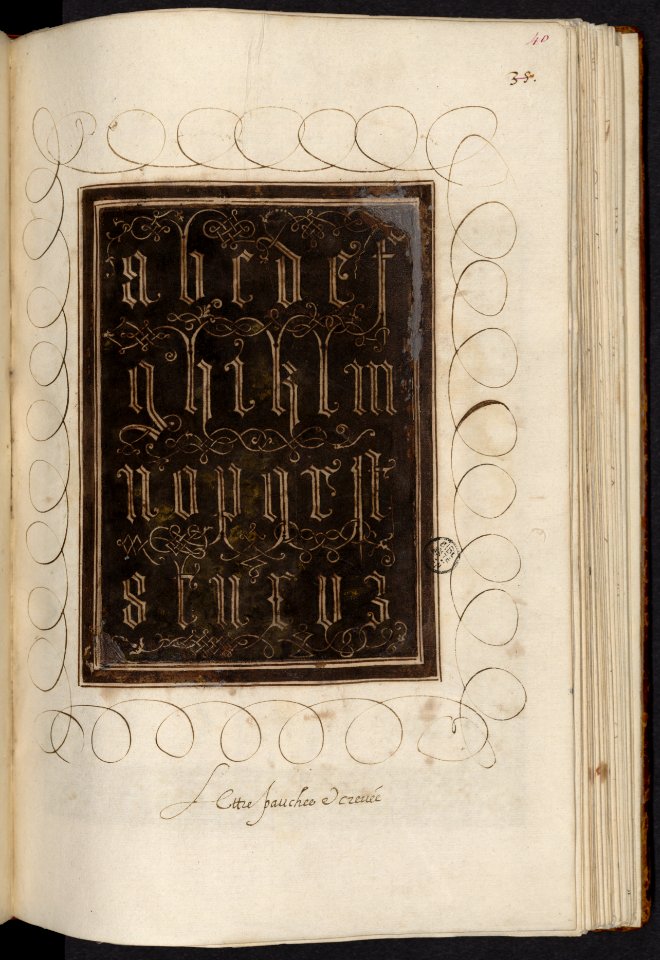 40
38.
a b c d e f
g h i k l m
n o p q r ſt
s t u x v z
Lettre panchee & creuée